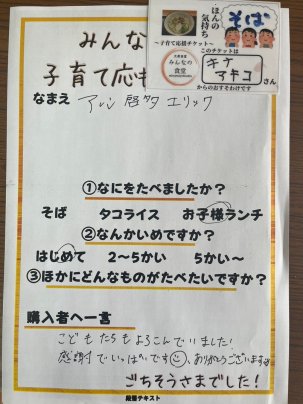 みんな
子育て応
ほんの気持ち
そば
～子育て応援チケット～
このチケットは
みんなの
食堂
キナ
マキコ
さん
からのおすそわけです
なまえ
啓多 エリック
①なにをたべましたか？
そば タコライス お子様ランチ
②なんかいめですか？
はじめて 2～5かい 5かい～
③ほかにどんなものがたべたいですか？
購入者へ一言
こどもたちもよろこんでいました！
感謝でいっぱいです☺ ありがとうございます。
ごちそうさまでした！
段落テキスト